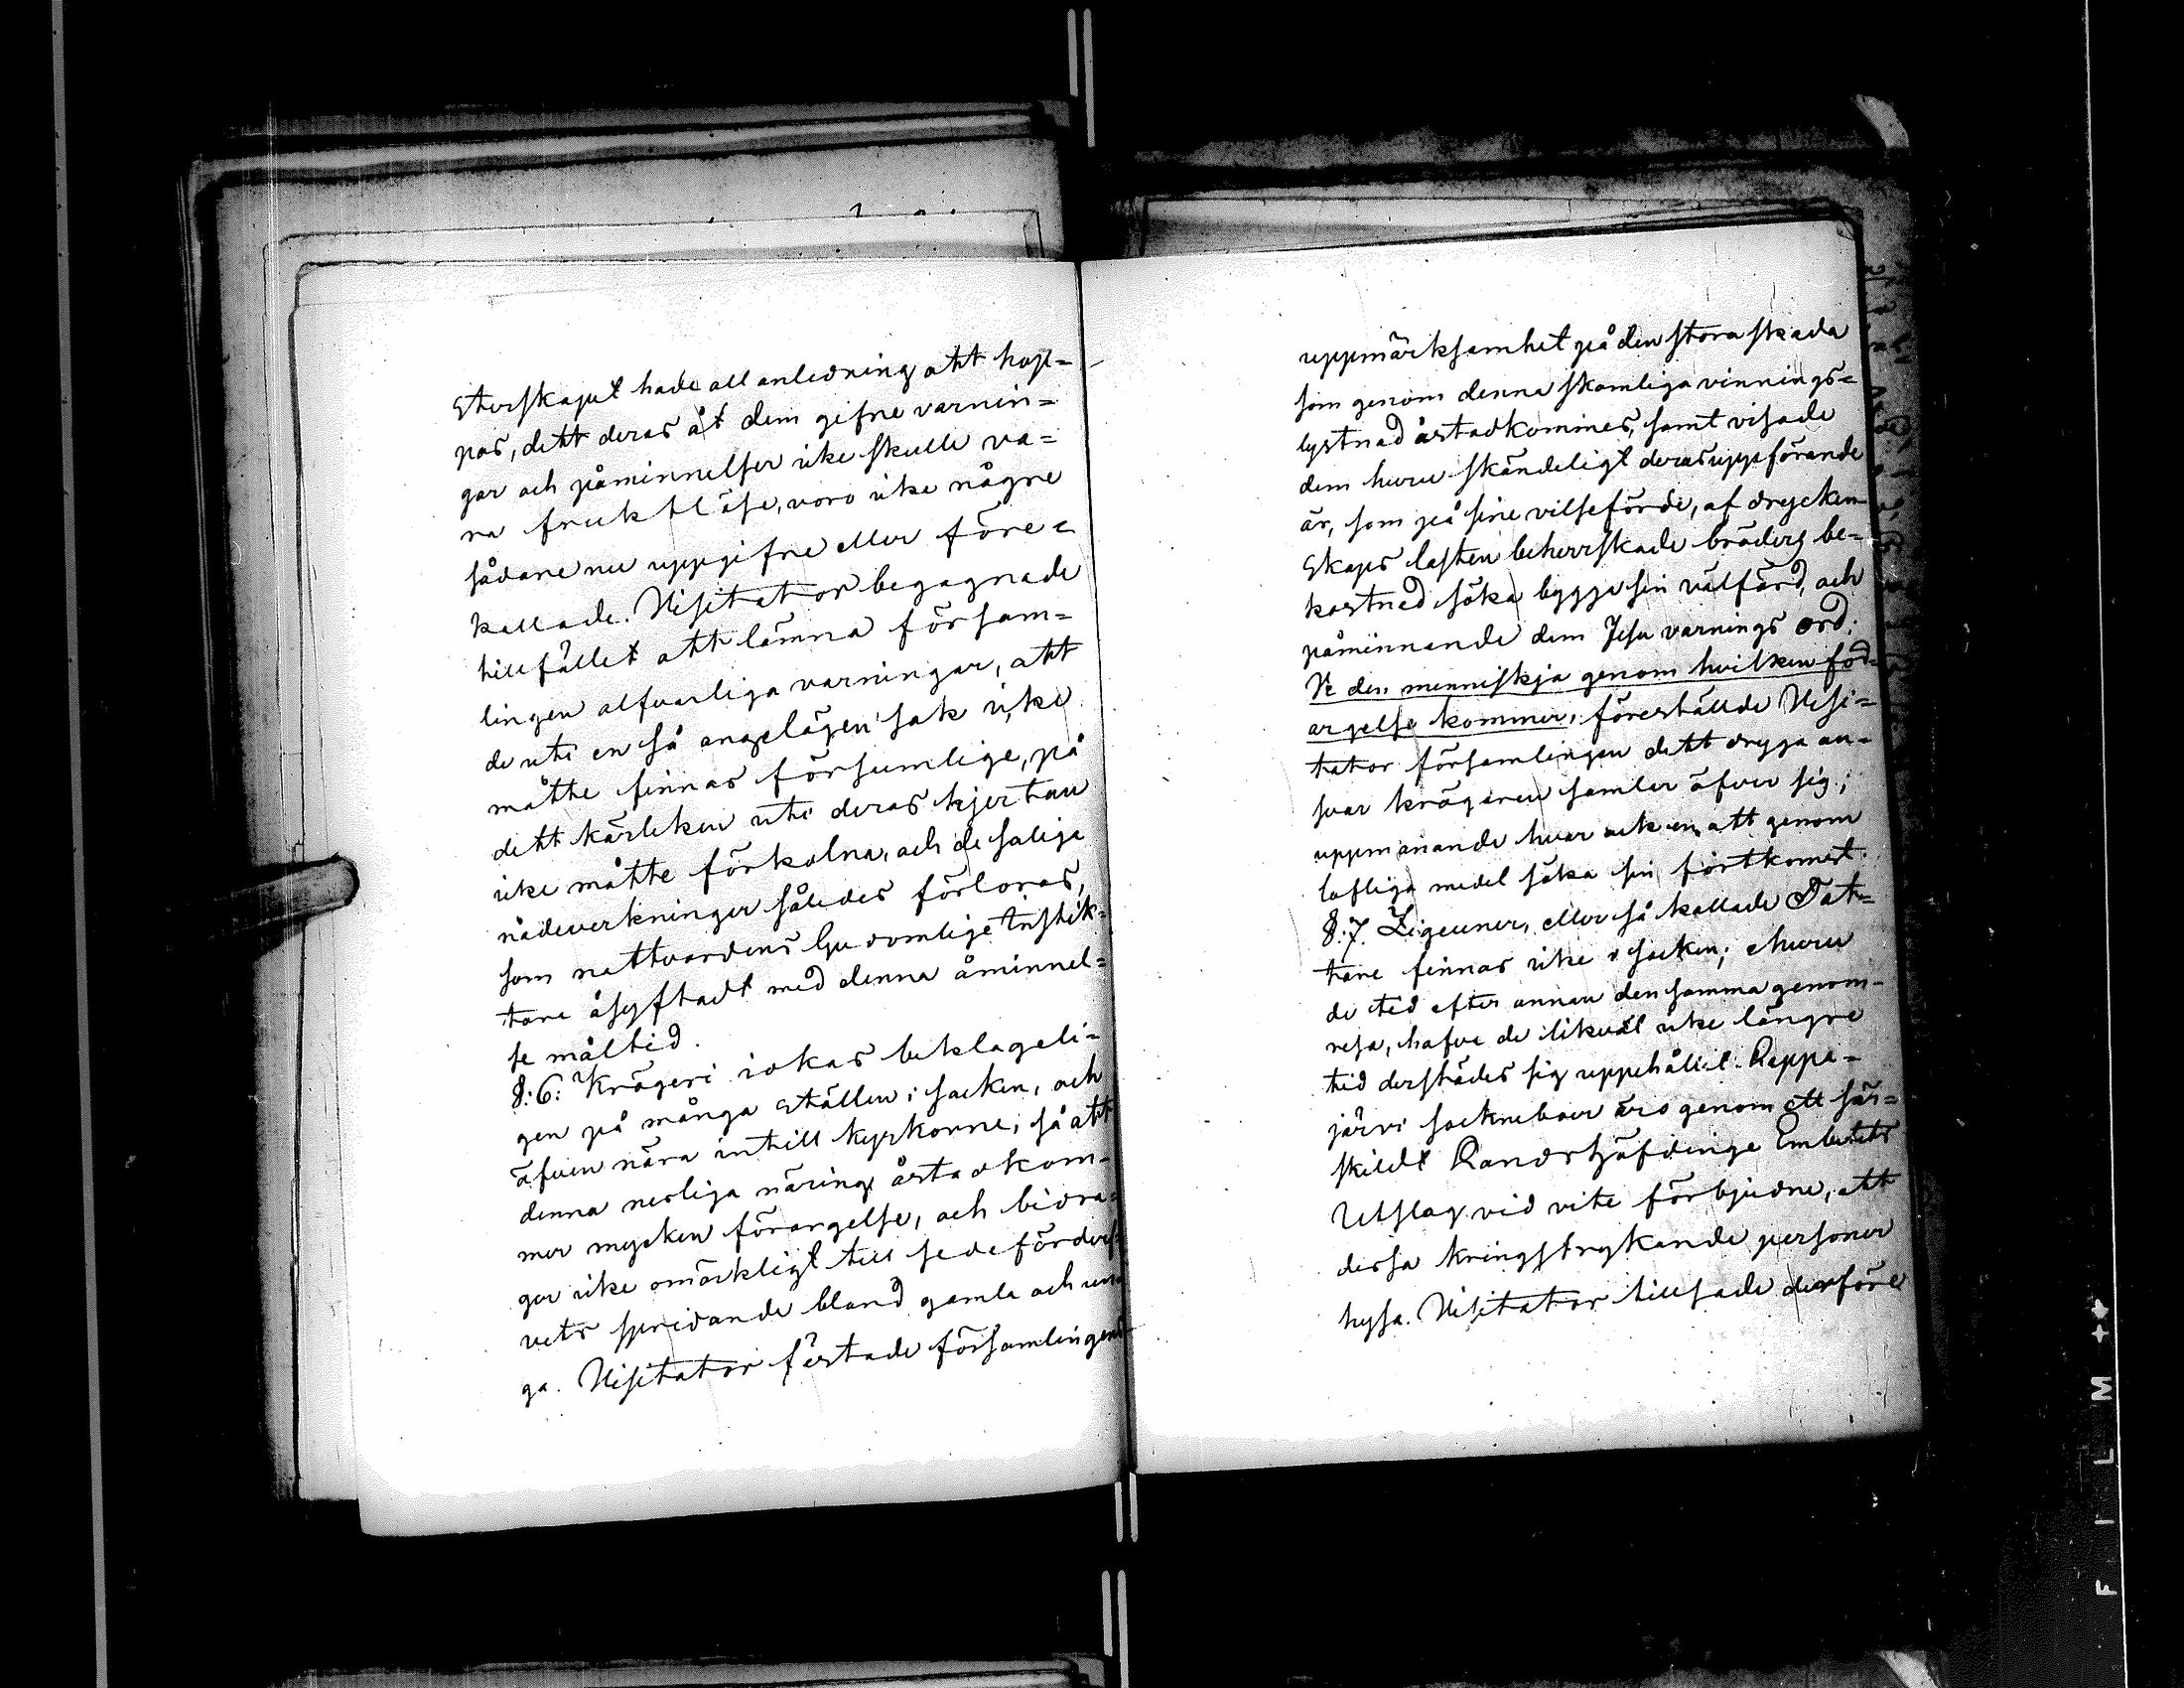 sterskapet hade all anledning att hop=
pas, dett deras åt dem gifne varnin=
gar och påminnelser icke skulle va=
ra fruktlöse, voro icke någre
sådane nu uppgifne eller före=
kallade. Visitator begagnade
tillfället att lämna försam=
lingen alfvarliga varningar, att
de uti en så angelägen sak icke
måtte finnas försumlige, på
dett kärleken uti deras hjertan
icke måtte förkolna, och de salige
nådeverkningar således förloras,
som nattvardens Gudomlige Instik=
tare åsyftadt med denna åminnel=
se måltid.
8:6: Krögeri idkas beklageli=
gen på många ställen i socken, och
äfven nära intill kyrkorne, så att
denna nesliga näring åstadkom=
mer mycken förargelse, och bidra=
ger icke omärkligt till sedeförderf=
vets spridande bland gamla och un=
ga. Visitator fästade församlingens
uppmärksamhet på den stora skada
som genom denna skamliga vinnings=
lystnad åstadkommes, samt visade
dem huru skändeligt deras uppförande
är, som på sine vilseförde, af drycken=
skaps lasten beherrskade bröders be=
kostnad söka bygga sin välfärd, och
påminnande dem Jesu varnings ord:
Ve den menniskja genom hvilken för=
argelse kommer, föreställde Visi=
tator församlingen dett dryga an=
svar krögaren samlar öfver sig;
uppmanande hvar och en att genom
lofliga medel söka sin förtkomst.
8:7. Zigeuner, eller så kallade Tat=
tare finnas icke i socken; ehuru
de tid efter annan den samma genom=
resa, hafva de likväl icke längre
tid derstädes sig uppehållit. Lappa=
järvi socknebor äro genom ett sär=
skildt Landshöfdinge Embetets
Utslag vid vite förbjudne, att
dessa kringstrykande personer
hysa. Visitator tillsade derföre